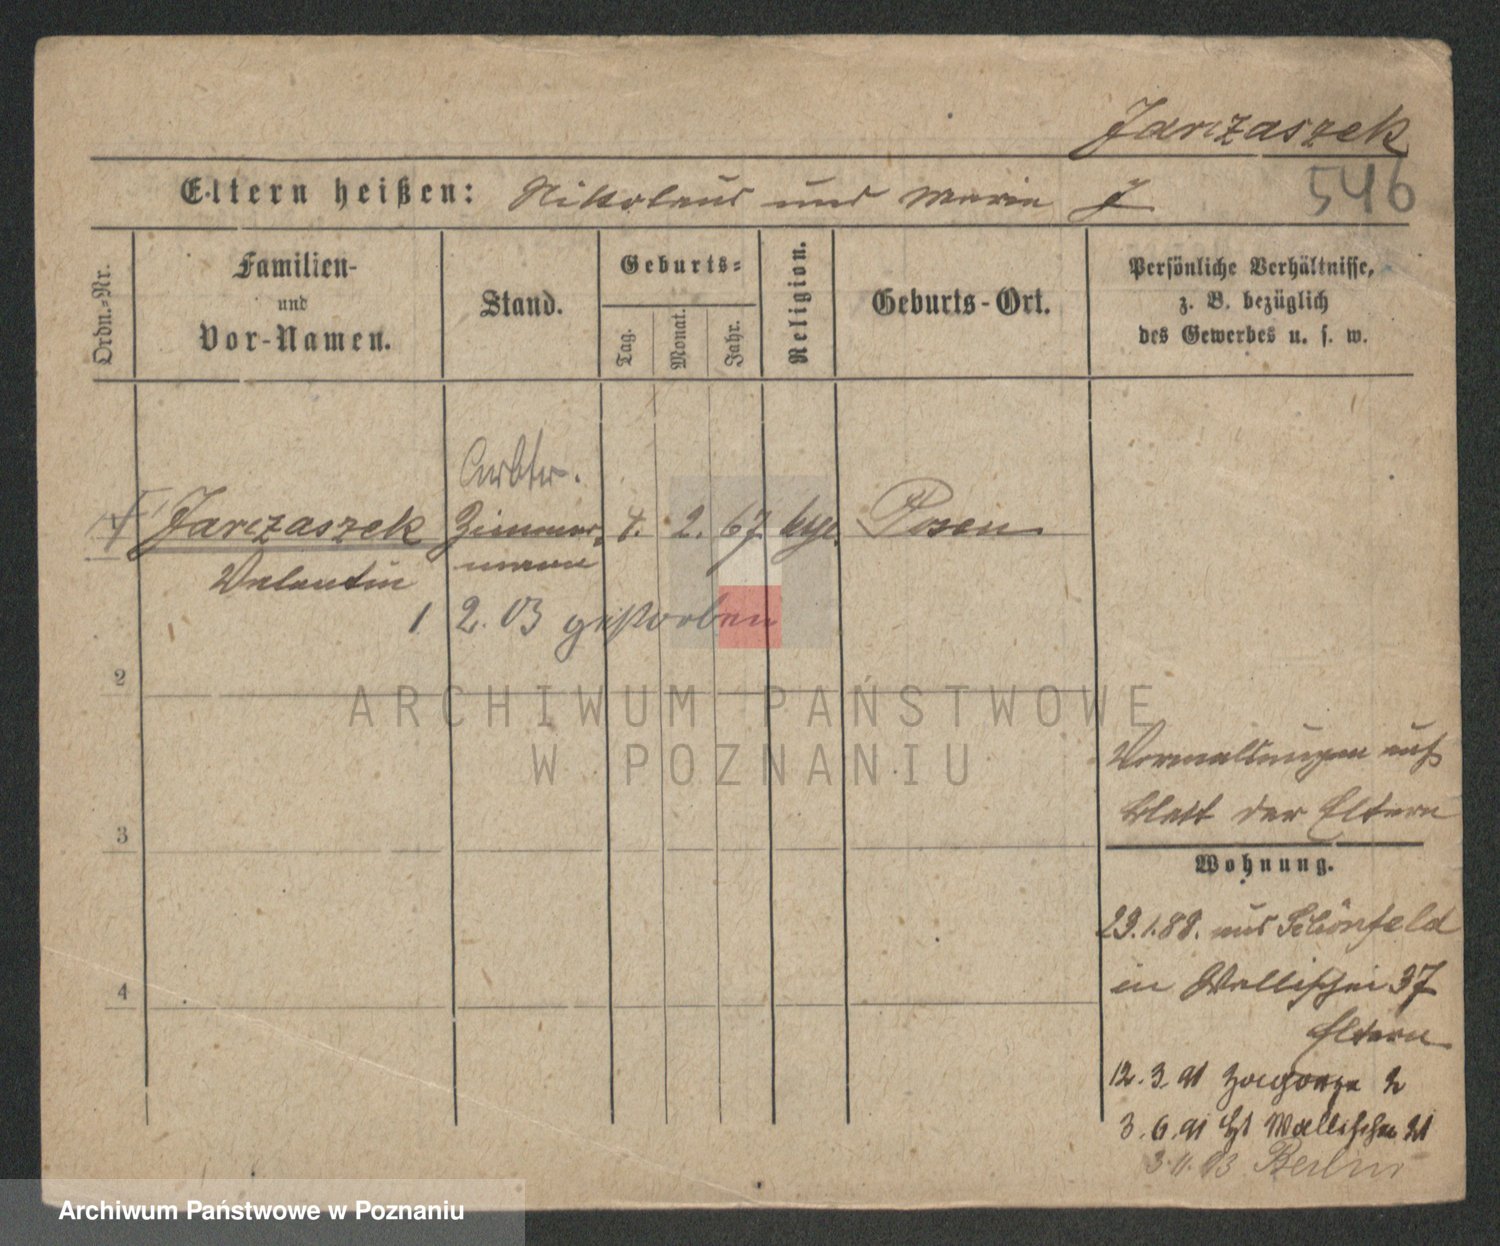 Jarczaszek
546
Eltern heißen: Nikolaus und Marie J
Ordn.-Nr.
Familien-
und
Vor-Namen.
Stand.
Geburts-
Tag.
Monat.
Jahr.
Religion.
Geburts-Ort.
Persönliche Verhältnisse,
z. B. bezüglich
des Gewerbes u. s. w.
Arbtr.
Jarczaszek Zimmer- 4. 2. 67 Posen
Valentin mann
1 2. 03 gestorben
2
ARCHIWUM PAŃSTWOWE
W POZNANIU
3
4
Vermaltungen auf
Blatt der Eltern
Wohnung.
29.1.88. aus Schönfeld
in Wallischei 37
Eltern
12.3.91 2
3.6.91 Wallischei 21
Berlin
Archiwum Państwowe w Poznaniu